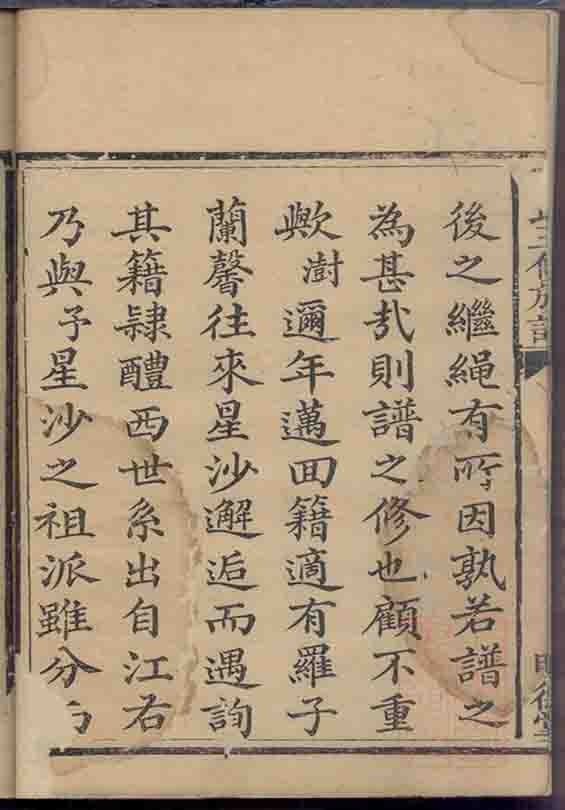 後之繼繩有所因孰若譜之
為甚哉則譜之修也顧不重
歟澍邇年邁回籍適有羅子
蘭馨往來星沙邂逅而遇詢
其籍隸醴西世系出自江右
乃與予星沙之祖派雖分
三修族譜